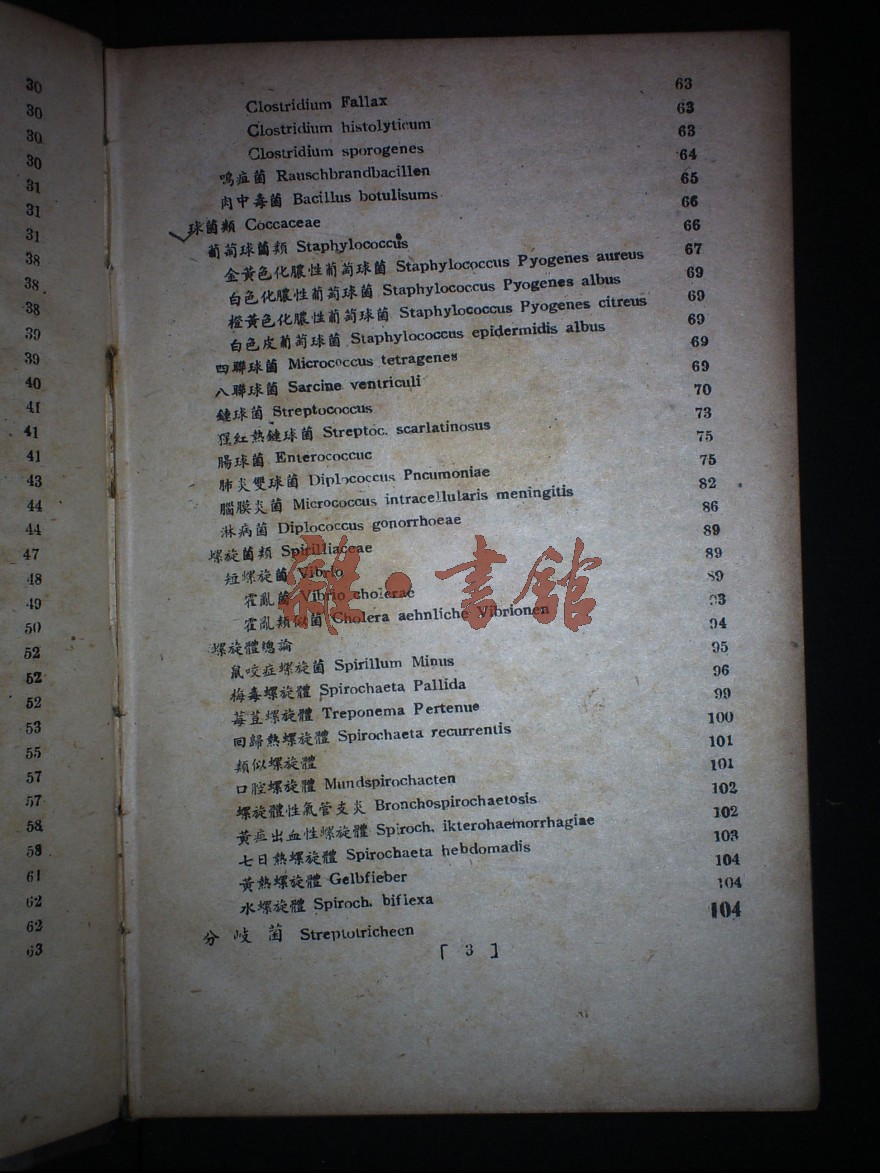 30
30
30
30
31
31
31
38
38
38
39
39
40
41
41
41
43
44
44
47
48
49
50
52
52
52
53
55
57
57
58
59
61
62
62
63
Clostridium Fallax 63
Clostridium histolyticum 63
Clostridium sporogenes 63
鳴疽菌 Rauschbrandbacillen 64
肉中毒菌 Bacillus botulisums 65
球菌類 Coccaceae 66
葡萄球菌類 Staphylococcus 66
金黃色化膿性葡萄球菌 Staphylococcus Pyogenes aureus 67
白色化膿性葡萄球菌 Staphylococcus Pyogenes albus 69
橙黃色化膿性葡萄球菌 Staphylococcus Pyogenes citreus 69
白色皮葡萄球菌 Staphylococcus epidermidis albus 69
四聯球菌 Micrococcus tetragenes 69
八聯球菌 Sarcine ventriculi 69
鏈球菌 Streptococcus 70
猩紅熱鏈球菌 Streptoc. scarlatinosus 73
腸球菌 Enterococcuc 75
肺炎雙球菌 Diplococcus Pncumoniae 75
腦膜炎菌 Micrococcus intracellularis meningitis 82
淋病菌 Diplococcus gonorrhoeae 86
螺旋菌類 Spirilliaceae 89
短螺旋菌 Vibrio 89
霍亂菌 Vibrio cholerae 89
霍亂類似菌 Cholera aehnliche Vibrionen 93
螺旋體總論 94
鼠咬症螺旋菌 Spirillum Minus 95
梅毒螺旋體 Spirochaeta Pallida 96
莓荳螺旋體 Treponema Pertenue 99
回歸熱螺旋體 Spirochaeta recurrentis 100
類似螺旋體 101
口腔螺旋體 Mundspirochacten 101
螺旋體性氣管支炎 Bronchospirochaetosis 102
黃疸出血性螺旋體 Spiroch. ikterohaemorrhagiae 102
七日熱螺旋體 Spirochaeta hebdomadis 103
黃熱螺旋體 Gelbfieber 104
水螺旋體 Spiroch. biflexa 104
分岐菌 Streptotricheen 104
[ 3 ]
雜·書館